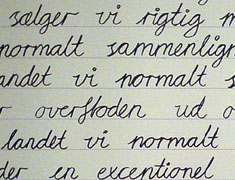 sælger vi rigtig m
normalt sammenlign
andet vi normalt s
r overfloden ud o
landet vi normalt
der en exceptionel